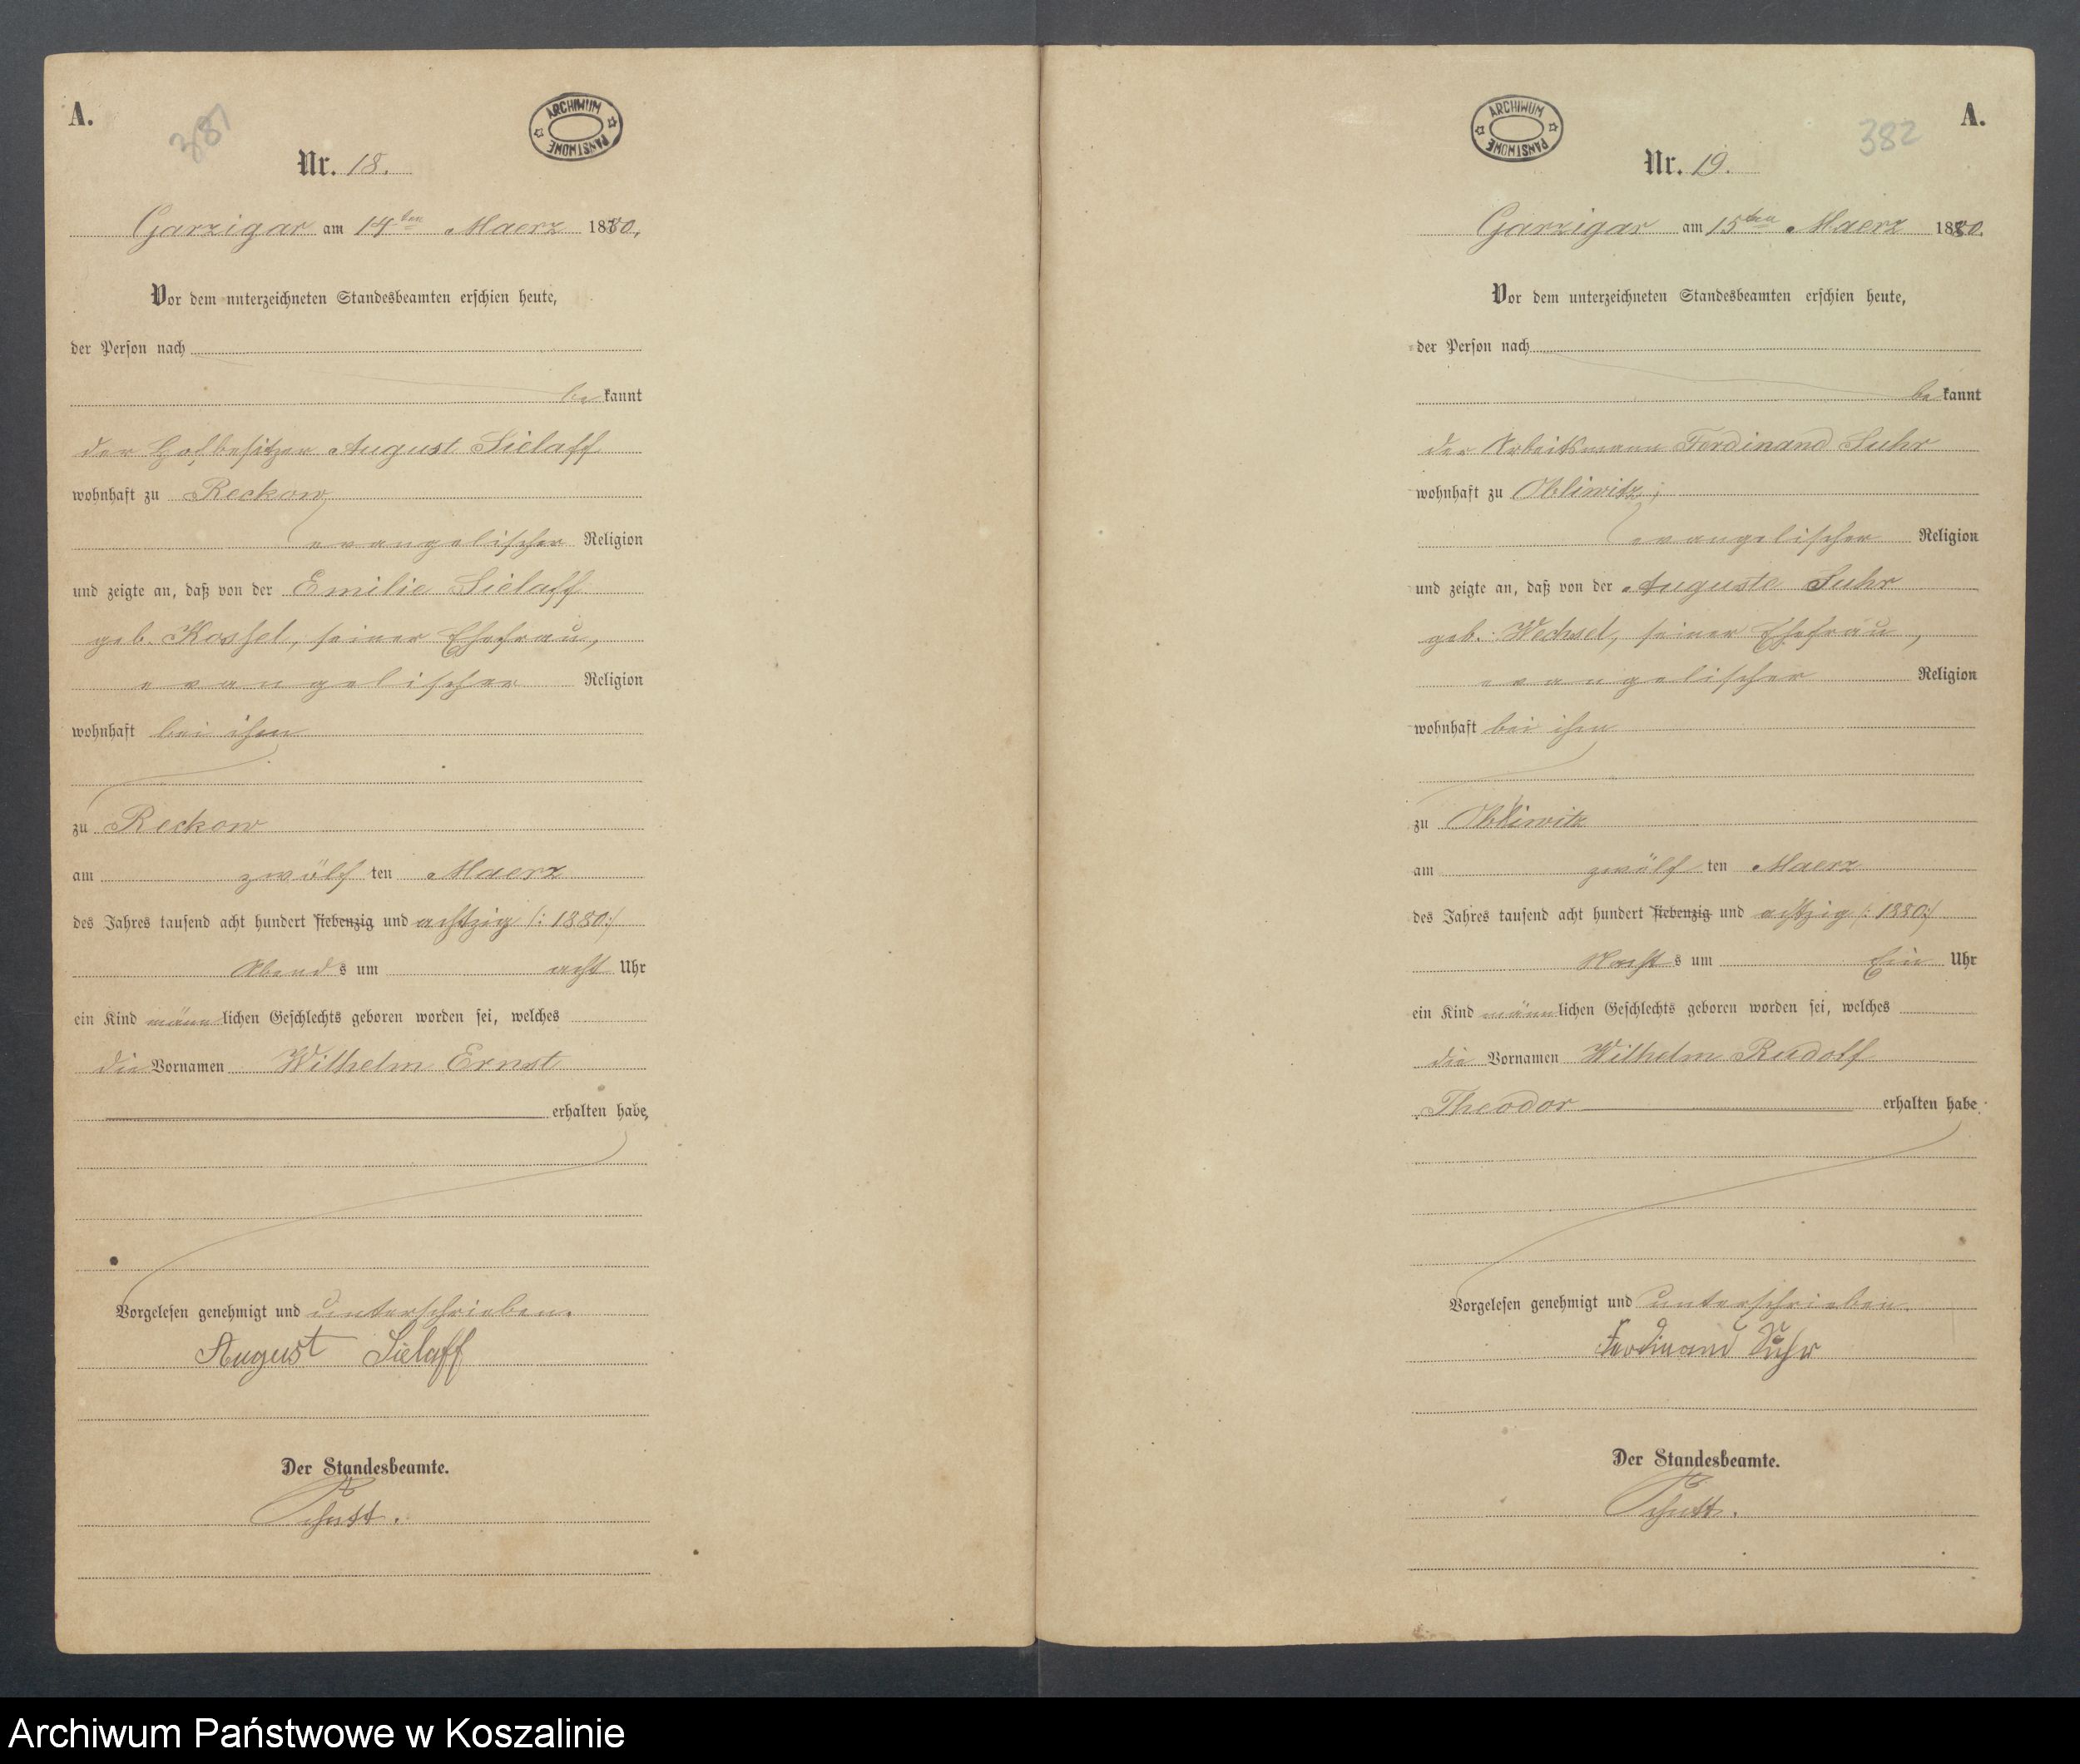 A.
381
ARCHIWUM PAŃSTWOWE
Nr. 18.
Garzigar am 14ten Maerz 1880.
Vor dem unterzeichneten Standesbeamten erschien heute,
der Person nach
be kannt
der Hofbesitzer August Sielaff
wohnhaft zu Reckow,
evangelischer Religion
und zeigte an, daß von der Emilie Sielaff
geb. Koshel, seiner Ehefrau,
evangelischer Religion
wohnhaft bei ihm
zu Reckow
am zwölf ten Maerz
des Jahres tausend acht hundert siebenzig und achtzig /: 1880 :/
Abend s um acht Uhr
ein Kind männ lichen Geschlechts geboren worden sei, welches
die Vornamen Wilhelm Ernst
erhalten habe,
Vorgelesen genehmigt und unterschrieben.
August Sielaff
Der Standesbeamte.
A.
382
ARCHIWUM PAŃSTWOWE
Nr. 19.
Garzigar am 15ten Maerz 1880.
Vor dem unterzeichneten Standesbeamten erschien heute,
der Person nach
be kannt
der Arbeitsmann Ferdinand Suhr
wohnhaft zu Obliwitz,
evangelischer Religion
und zeigte an, daß von der Auguste Suhr
geb. Wechsel, seiner Ehefrau,
evangelischer Religion
wohnhaft bei ihm
zu Obliwitz
am zwölf ten Maerz
des Jahres tausend acht hundert siebenzig und achtzig /: 1880 :/
Nacht s um Ein Uhr
ein Kind männ lichen Geschlechts geboren worden sei, welches
die Vornamen Wilhelm Rudolf
Theodor erhalten habe.
Vorgelesen genehmigt und unterschrieben.
Ferdinand Suhr
Der Standesbeamte.
Archiwum Państwowe w Koszalinie